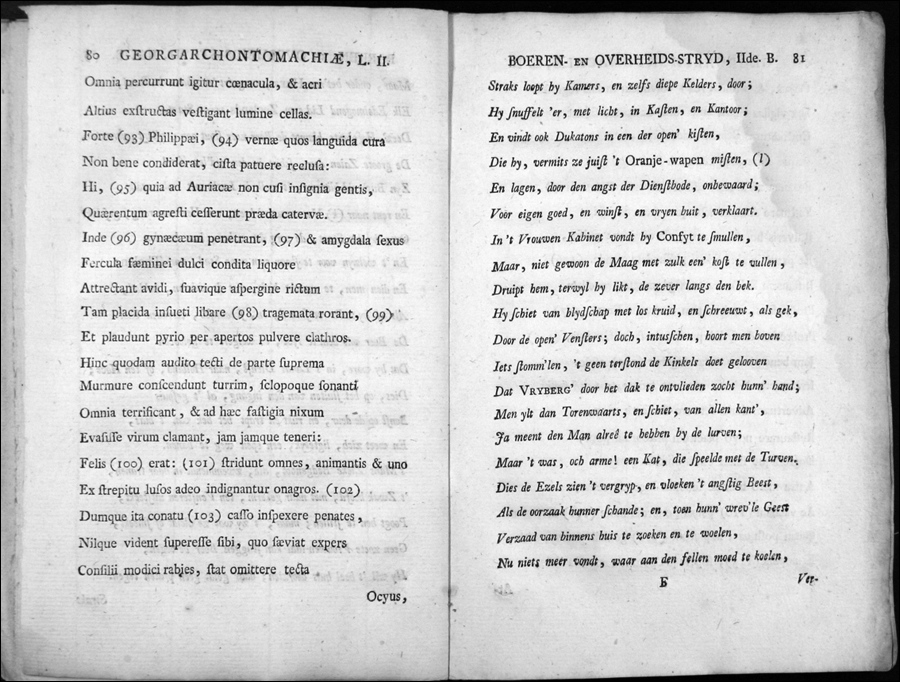 80 GEORGARCHONTOMACHIÆ, L. II.
Omnia percurrunt igitur cœnacula, & acri
Altius exſtructas veſtigant lumine cellas.
Forte (93) Philippæi, (94) vernæ quos languida cura
Non bene condiderat, ciſta patuere recluſa:
Hi, (95) quia ad Auriacæ non cuſi inſignia gentis,
Quærentum agreſti ceſſerunt præda catervæ.
Inde (96) gynæcæum penetrant, (97) & amygdala ſexus
Fercula fæminei dulci condita liquore
Attrectant avidi, ſuavique aſpergine rictum
Tam placida inſueti libare (98) tragemata rorant, (99)
Et plaudunt pyrio per apertos pulvere clathros.
Hinc quodam audito tecti de parte ſuprema
Murmure conſcendunt turrim, ſclopoque ſonanti
Omnia terrificant, & ad hæc faſtigia nixum
Evaſiſſe virum clamant, jam jamque teneri:
Felis (100) erat: (101) ſtridunt omnes, animantis & uno
Ex ſtrepitu luſos adeo indignantur onagros. (102)
Dumque ita conatu (103) caſſo inſpexere penates,
Nilque vident ſupereſſe ſibi, quo ſæviat expers
Conſilii modici rabjes, ſtat omittere tecta
Ocyus,
BOEREN- EN OVERHEIDS-STRYD, IIde. B. 81
Straks loopt hy Kamers, en zelfs diepe Kelders, door;
Hy ſnuffelt 'er, met licht, in Kaſten, en Kantoor;
En vindt ook Dukatons in een der open' kiſten,
Die hy, vermits ze juiſt 't Oranje-wapen miſten, (l)
En lagen, door den angst der Dienſtbode, onbewaard;
Voor eigen goed, en winſt, en vryen buit, verklaart.
In 't Vrouwen Kabinet vondt hy Confyt te ſmullen,
Maar, niet gewoon de Maag met zulk een' koſt te vullen,
Druipt hem, terwyl hy likt, de zever langs den bek.
Hy ſchiet van blydſchap met los kruid, en ſchreeuwt, als gek,
Door de open' Venſters; doch, intuſſchen, hoort men boven
Iets ſtomm'len, 't geen terſtond de Kinkels doet gelooven
Dat VRYBERG' door het dak te ontvlieden zocht hunn' hand;
Men ylt dan Torenwaarts, en ſchiet, van allen kant',
Ja meent den Man alreê te hebben by de lurven;
Maar 't was, och arme! een Kat, die ſpeelde met de Turven.
Dies de Ezels zien 't vergryp, en vloeken 't angſtig Beest,
Als de oorzaak hunner ſchande; en, toen hunn' wrev'le Geest
Verzaad van binnens huis te zoeken en te woelen,
Nu niets meer vondt, waar aan den fellen moed te koelen,
Ver-